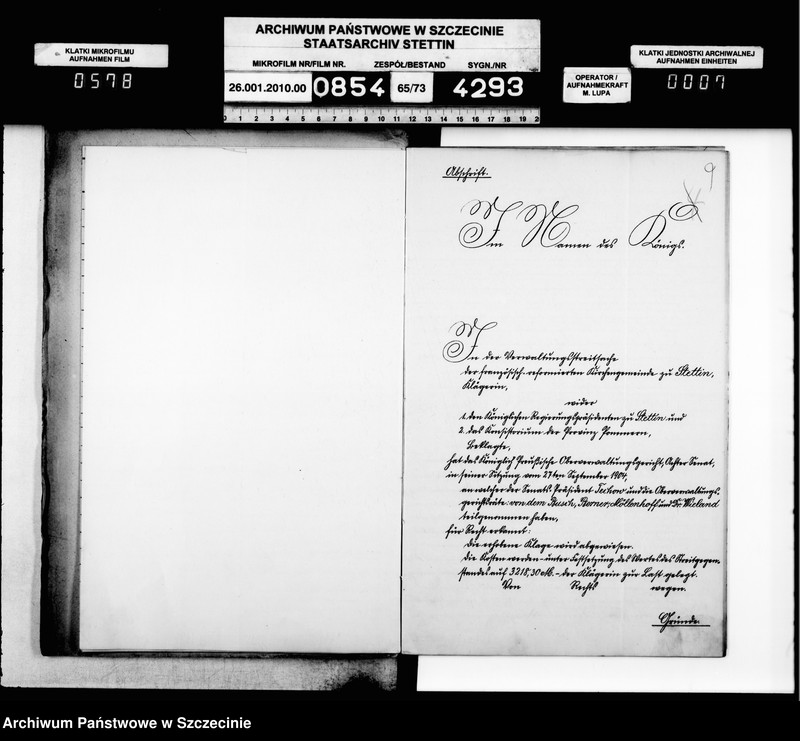 ARCHIWUM PAŃSTWOWE W SZCZECINIE
STAATSARCHIV STETTIN
KLATKI MIKROFILMU
AUFNAHMEN FILM
0578
MIKROFILM NR/FILM NR. ZESPÓŁ/BESTAND SYGN./NR
26.001.2010.00 0854 65/73 4293
0 1 2 3 4 5 6 7 8 9 10 11 12 13 14 15 16 17 18 19 2
OPERATOR /
AUFNAHMEKRAFT
M. LUPA
KLATKI JEDNOSTKI ARCHIWALNEJ
AUFNAHMEN EINHEITEN
0007
9
Abschrift.
Im Namen des Königs.
In der Verwaltungsstreitsache
der französisch-reformierten Kirchengemeinde zu Stettin,
Klägerin,
wider
1. den Königlichen Regierungspräsidenten zu Stettin und
2. das Konsistorium der Provinz Pommern,
Beklagte,
hat das Königlich Preußische Oberverwaltungsgericht, Achter Senat,
in seiner Sitzung vom 27ten September 1904,
an welcher der Senats-Präsident Techow und die Oberverwaltungs-
gerichtsräte: von dem Busch, Borner, Möllenhoff und Dr. Wieland
teilgenommen haben,
für Recht erkannt:
Die erhobene Klage wird abgewiesen.
Die Kosten werden – unter Festsetzung des Wertes des Streitgegen-
standes auf 3218,30 Mk. – der Klägerin zur Last gelegt.
Von Rechts wegen.
Gründe.
Archiwum Państwowe w Szczecinie